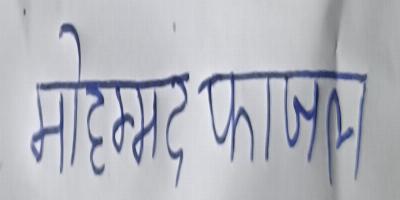 मोहम्मद फाजल